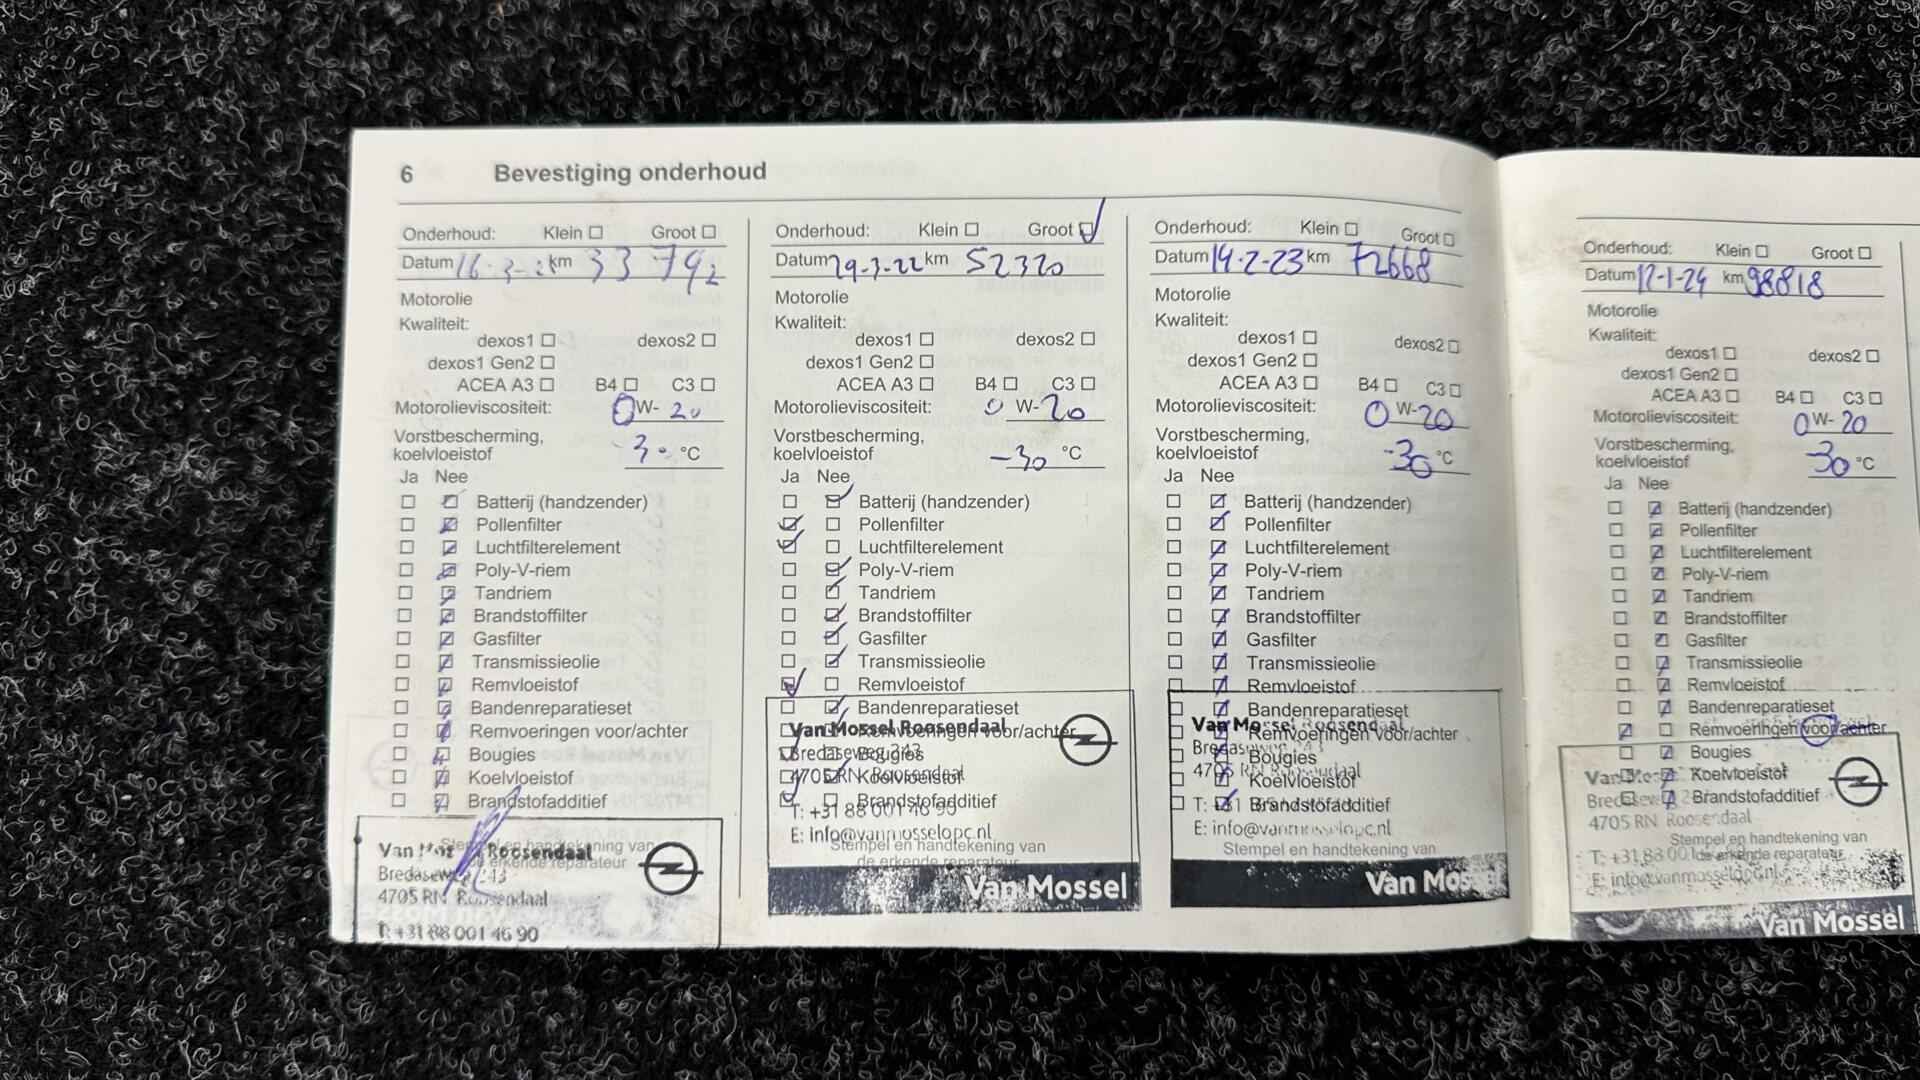 6 Bevestiging onderhoud
Onderhoud: Klein Groot
Datum 16-3- km 33 792
Motorolie
Kwaliteit:
dexos1 dexos2
dexos1 Gen2
ACEA A3 B4 C3
Motorolieviscositeit: 0 W- 20
Vorstbescherming,
koelvloeistof -30 °C
Ja Nee
Batterij (handzender)
Pollenfilter
Luchtfilterelement
Poly-V-riem
Tandriem
Brandstoffilter
Gasfilter
Transmissieolie
Remvloeistof
Bandenreparatieset
Remvoeringen voor/achter
Bougies
Koelvloeistof
Brandstofadditief
Stempel en handtekening van
de erkende reparateur
Van Roosendaal
Bredaseweg 243
4705 RN Roosendaal
T: +31 88 001 46 90
Onderhoud: Klein Groot
Datum 29-3-22 km 52320
Motorolie
Kwaliteit:
dexos1 dexos2
dexos1 Gen2
ACEA A3 B4 C3
Motorolieviscositeit: 0 W- 20
Vorstbescherming,
koelvloeistof -30 °C
Ja Nee
Batterij (handzender)
Pollenfilter
Luchtfilterelement
Poly-V-riem
Tandriem
Brandstoffilter
Gasfilter
Transmissieolie
Remvloeistof
Bandenreparatieset
Remvoeringen voor/achter
Bougies
Koelvloeistof
Brandstofadditief
Stempel en handtekening van
de erkende reparateur
Van Mossel Roosendaal
Bredaseweg 243
4705 RN Roosendaal
T: +31 88 001 46 90
E: info@vanmosselopc.nl
Van Mossel
Onderhoud: Klein Groot
Datum 14-2-23 km 72668
Motorolie
Kwaliteit:
dexos1 dexos2
dexos1 Gen2
ACEA A3 B4 C3
Motorolieviscositeit: 0 W- 20
Vorstbescherming,
koelvloeistof -30 °C
Ja Nee
Batterij (handzender)
Pollenfilter
Luchtfilterelement
Poly-V-riem
Tandriem
Brandstoffilter
Gasfilter
Transmissieolie
Remvloeistof
Bandenreparatieset
Remvoeringen voor/achter
Bougies
Koelvloeistof
Brandstofadditief
Stempel en handtekening van
Van Mossel Roosendaal
Bredaseweg 243
4705 RN Roosendaal
T: +31
E: info@vanmosselopc.nl
Van Mossel
Onderhoud: Klein Groot
Datum 12-1-24 km 98818
Motorolie
Kwaliteit:
dexos1 dexos2
dexos1 Gen2
ACEA A3 B4 C3
Motorolieviscositeit: 0 W- 20
Vorstbescherming,
koelvloeistof -30 °C
Ja Nee
Batterij (handzender)
Pollenfilter
Luchtfilterelement
Poly-V-riem
Tandriem
Brandstoffilter
Gasfilter
Transmissieolie
Remvloeistof
Bandenreparatieset
Remvoeringen voor/achter
Bougies
Koelvloeistof
Brandstofadditief
Stempel en handtekening van
de erkende reparateur
Van
4705 RN Roosendaal
T: +31 88 001
E: info@vanmosselopc.nl
Van Mossel